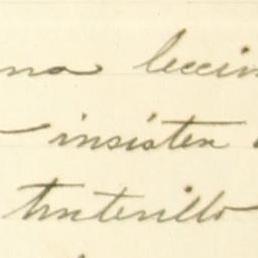 na leccin
insisten
tinterillo